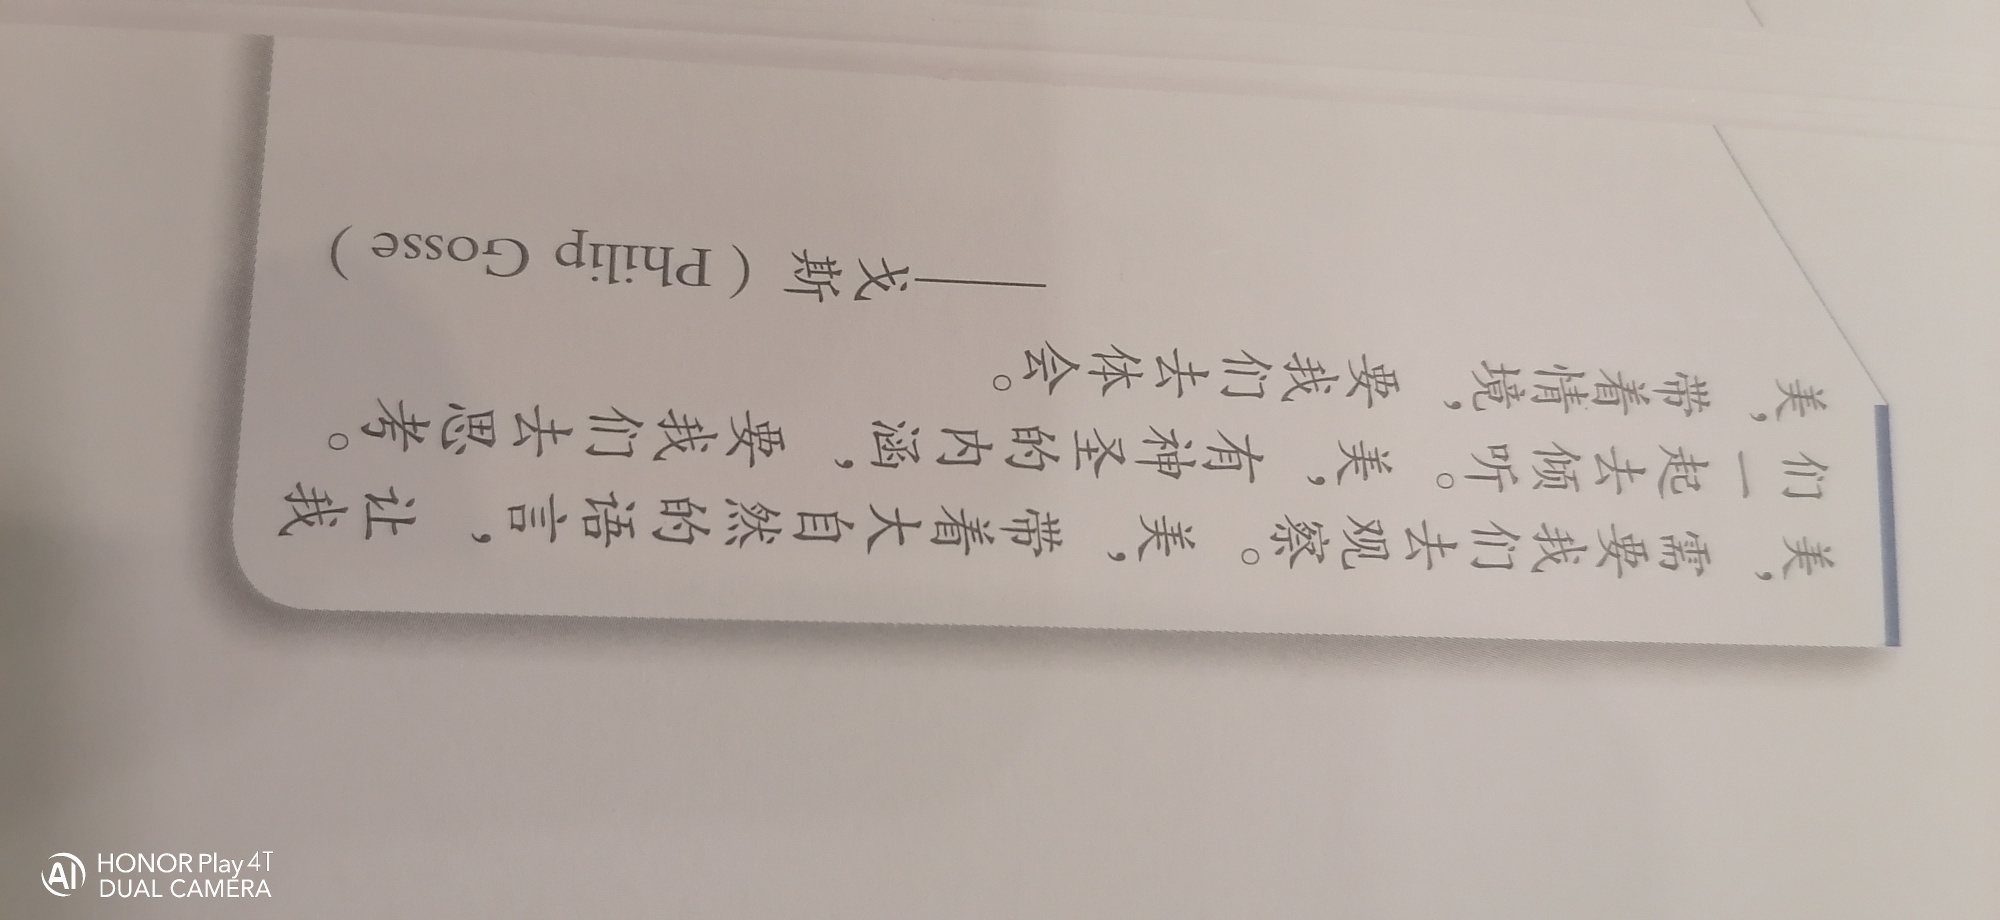 美，需要我们去观察。美，带着大自然的语言，让我
们一起去倾听。美，有神圣的内涵，要我们去思考。
美，带着情境，要我们去体会。
——戈斯（Philip Gosse）
AI HONOR Play 4T
DUAL CAMERA